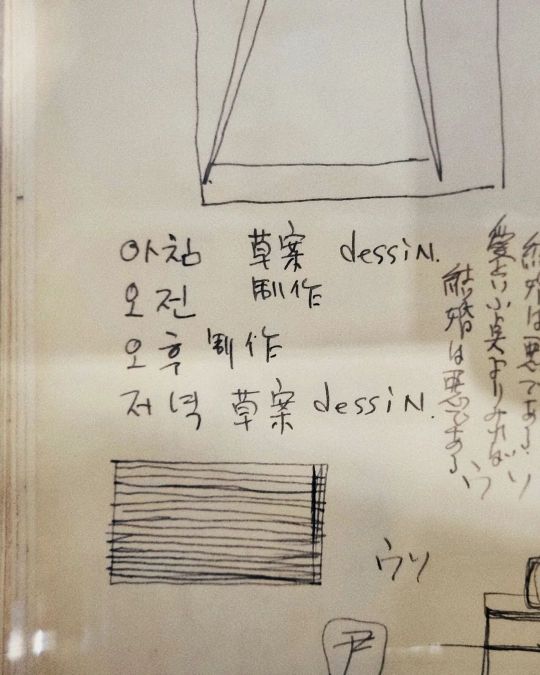 아침 草案 dessiN.
오전 制作
오후 制作
저녁 草案 dessiN.
結婚は悪である
愛といふ よりみれば
結婚は悪である
ウソ
ウソ
尹